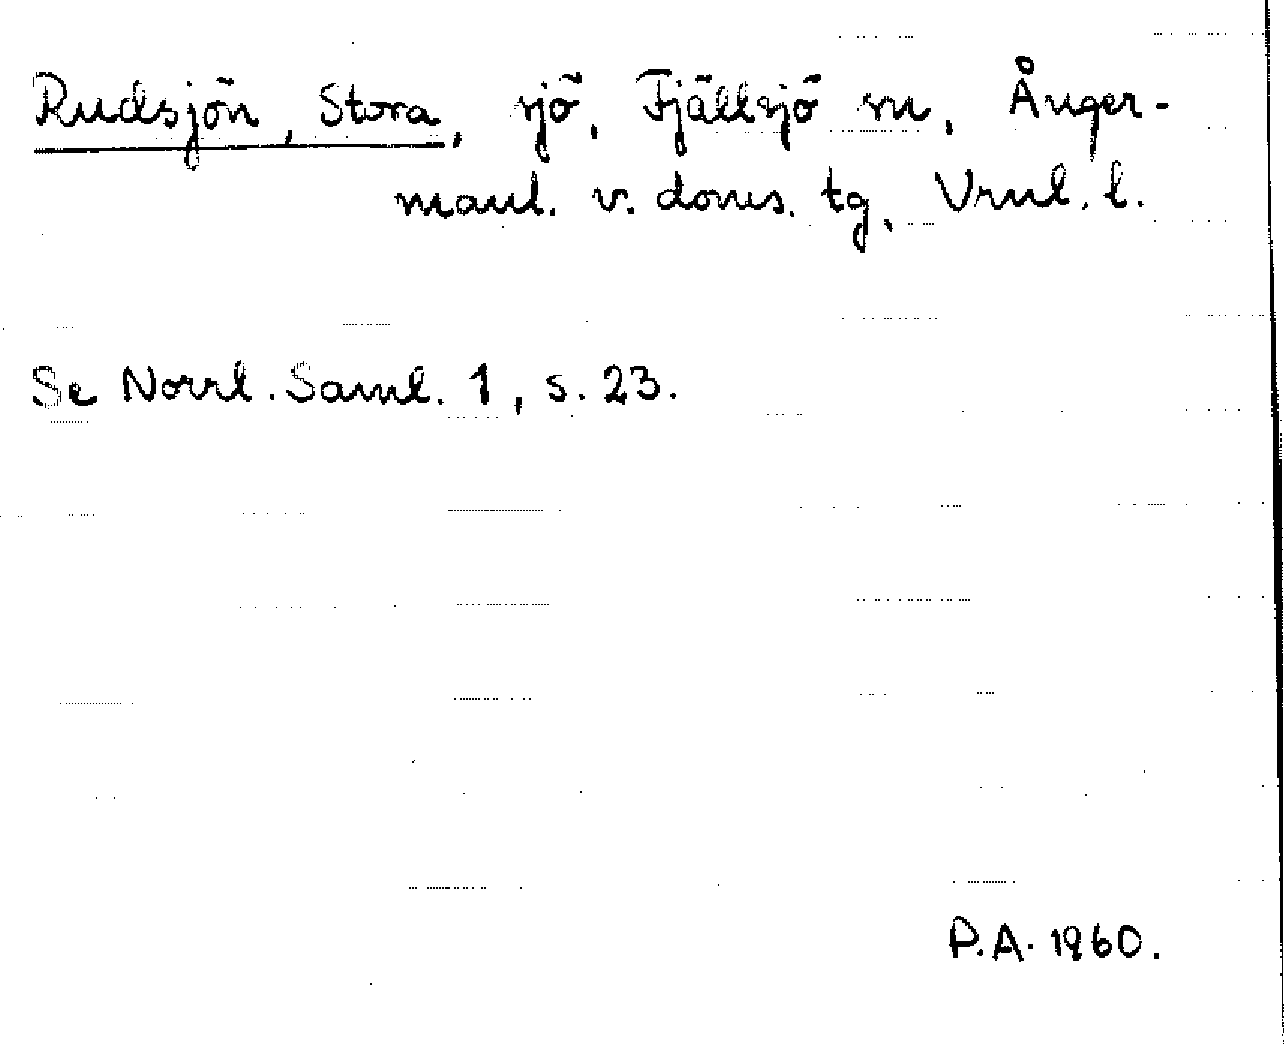 Rudsjön, Stora, sjö, Fjällsjö sn, Ånger-
manl. v. doms. tg, Vrnl. l.
Se Norrl. Saml. 1, s. 23.
P.A. 1960.